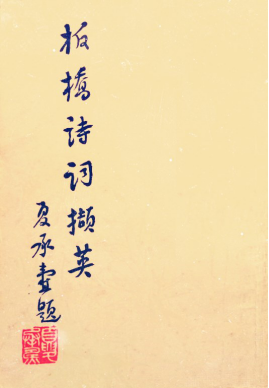 板橋詩詞擷英
夏承燾題